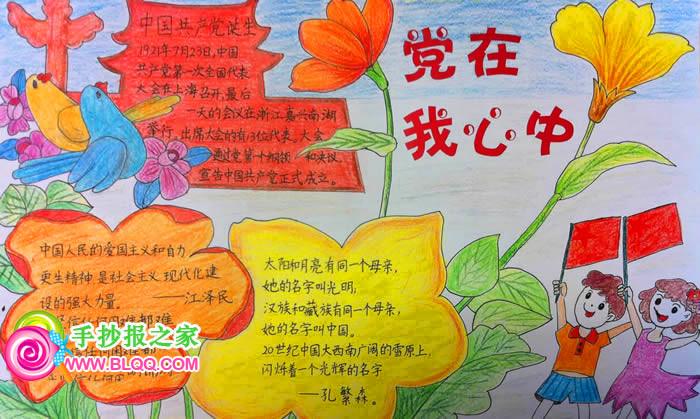 党在
我心中
中国共产党诞生
1921年7月23日,中国
共产党第一次全国代表
大会在上海召开,最后
一天的会议在浙江嘉兴南湖
举行,出席大会的有13位代表。大会
通过党第一个纲领和决议,
宣告中国共产党正式成立。
中国人民的爱国主义和自力
更生精神是社会主义现代化建
设的强大力量。
——江泽民
太阳和月亮有同一个母亲,
她的名字叫光明,
汉族和藏族有同一个母亲,
她的名字叫中国。
20世纪中国大西南广阔的雪原上,
闪烁着一个光辉的名字
——孔繁森。
手抄报之家
www.BLQQ.com